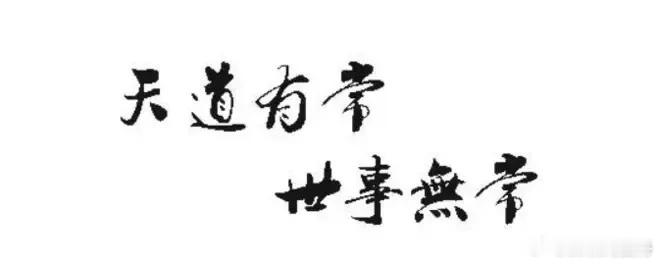 天道有常
世事無常